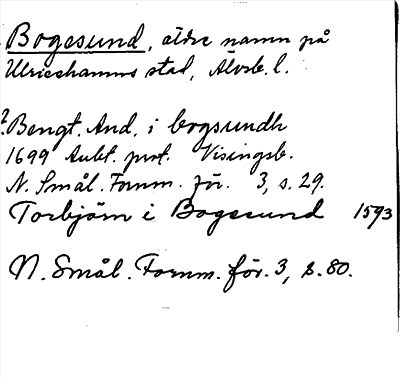 Bogesund, äldre namn på
Ulricehamns stad, Älvsb. l.
? Bengt. And. i bogsundh
1699 Aukt. prot. Visingsb.
N. Smål. Fornm. för. 3, s. 29.
Torbjörn i Bogesund 1593
N. Smål. Fornm. för. 3, s. 80.